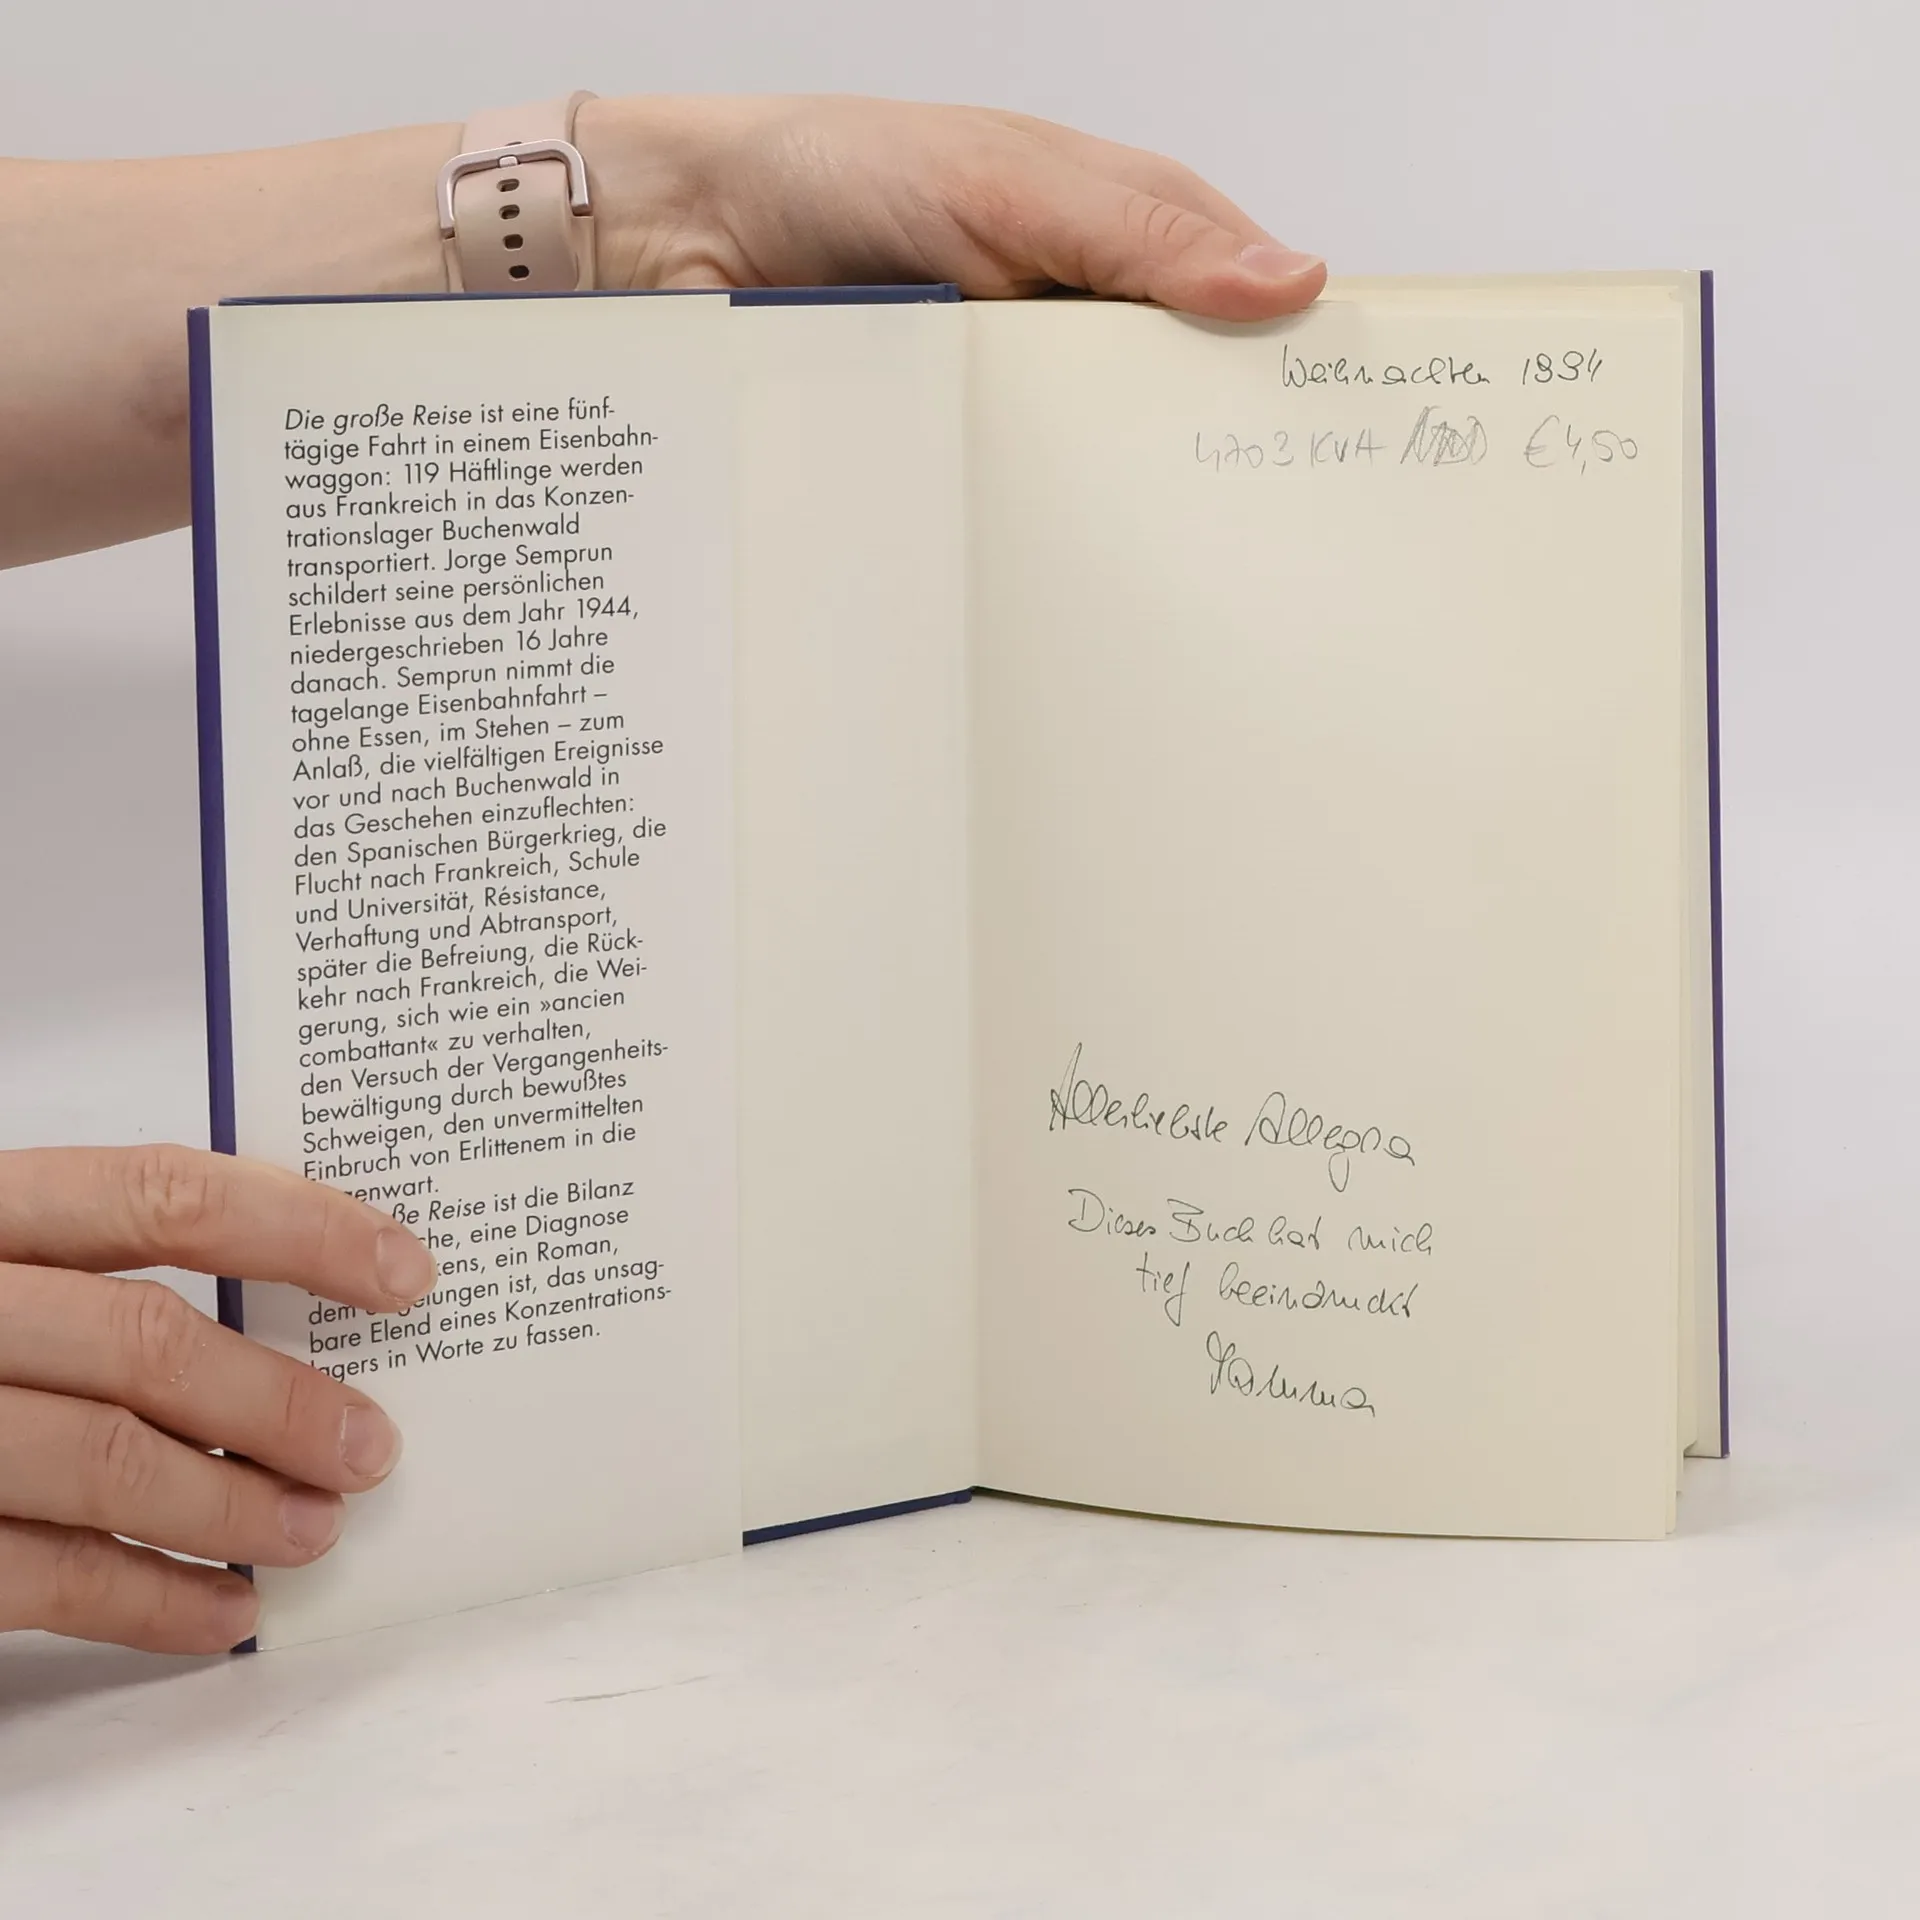 Die große Reise ist eine fünf-
tägige Fahrt in einem Eisenbahn-
waggon: 119 Häftlinge werden
aus Frankreich in das Konzen-
trationslager Buchenwald
transportiert. Jorge Semprun
schildert seine persönlichen
Erlebnisse aus dem Jahr 1944,
niedergeschrieben 16 Jahre
danach. Semprun nimmt die
tagelange Eisenbahnfahrt –
ohne Essen, im Stehen – zum
Anlaß, die vielfältigen Ereignisse
vor und nach Buchenwald in
das Geschehen einzuflechten:
den Spanischen Bürgerkrieg, die
Flucht nach Frankreich, Schule
und Universität, Résistance,
Verhaftung und Abtransport,
später die Befreiung, die Rück-
kehr nach Frankreich, die Wei-
gerung, sich wie ein »ancien
combattant« zu verhalten,
den Versuch der Vergangenheits-
bewältigung durch bewußtes
Schweigen, den unvermittelten
Einbruch von Erlittenem in die
enwart.
ße Reise ist die Bilanz
che, eine Diagnose
kens, ein Roman,
dem elungen ist, das unsag-
bare Elend eines Konzentrations-
lagers in Worte zu fassen.
Weihnachten 1994
4703 KVA €4,50
Allerliebste Allegra
Dieses Buch hat mich
tief beeindruckt
Mamma